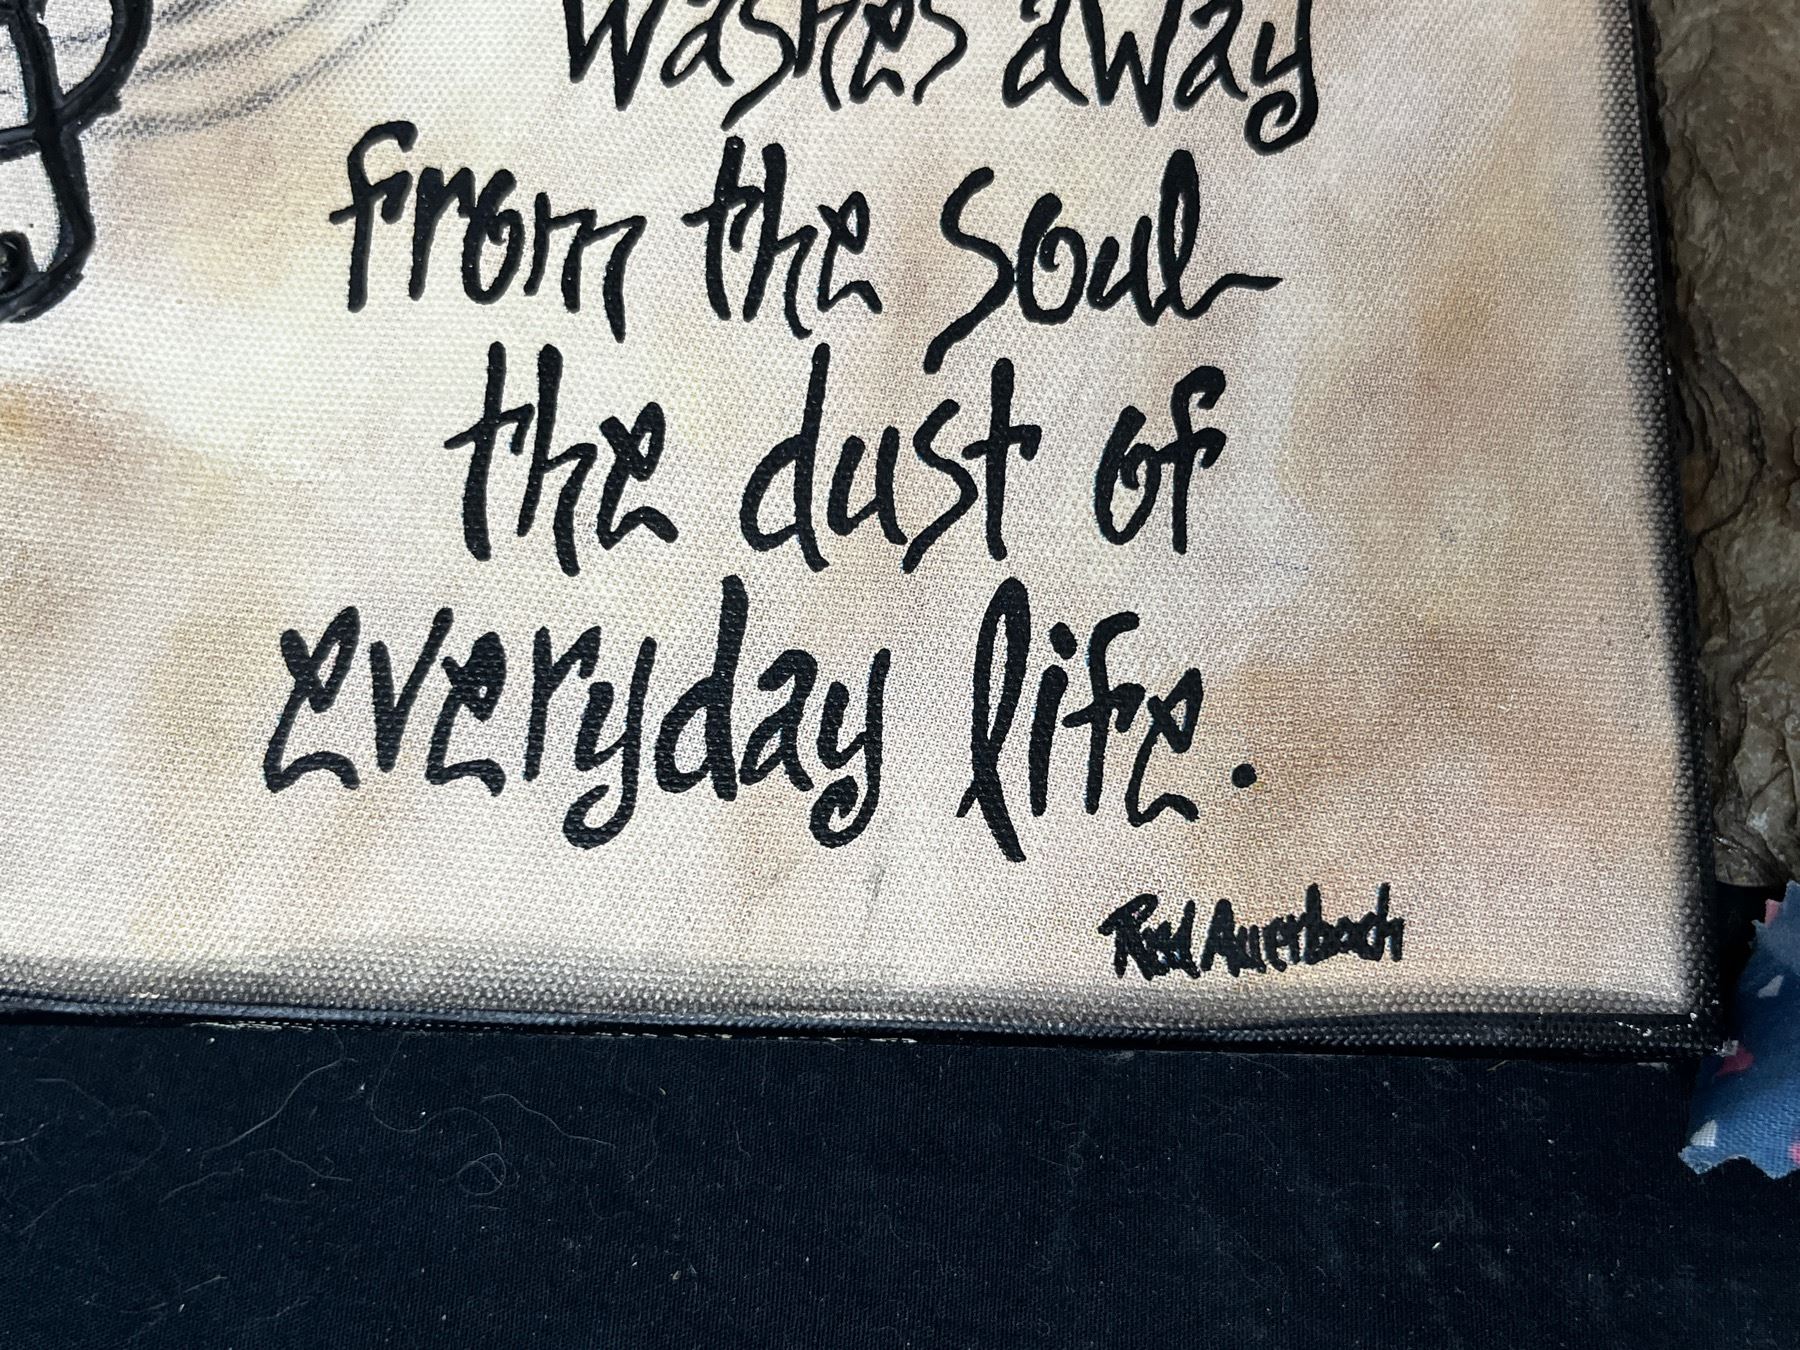 washes away
from the soul
the dust of
everyday life.
Red Auerbach